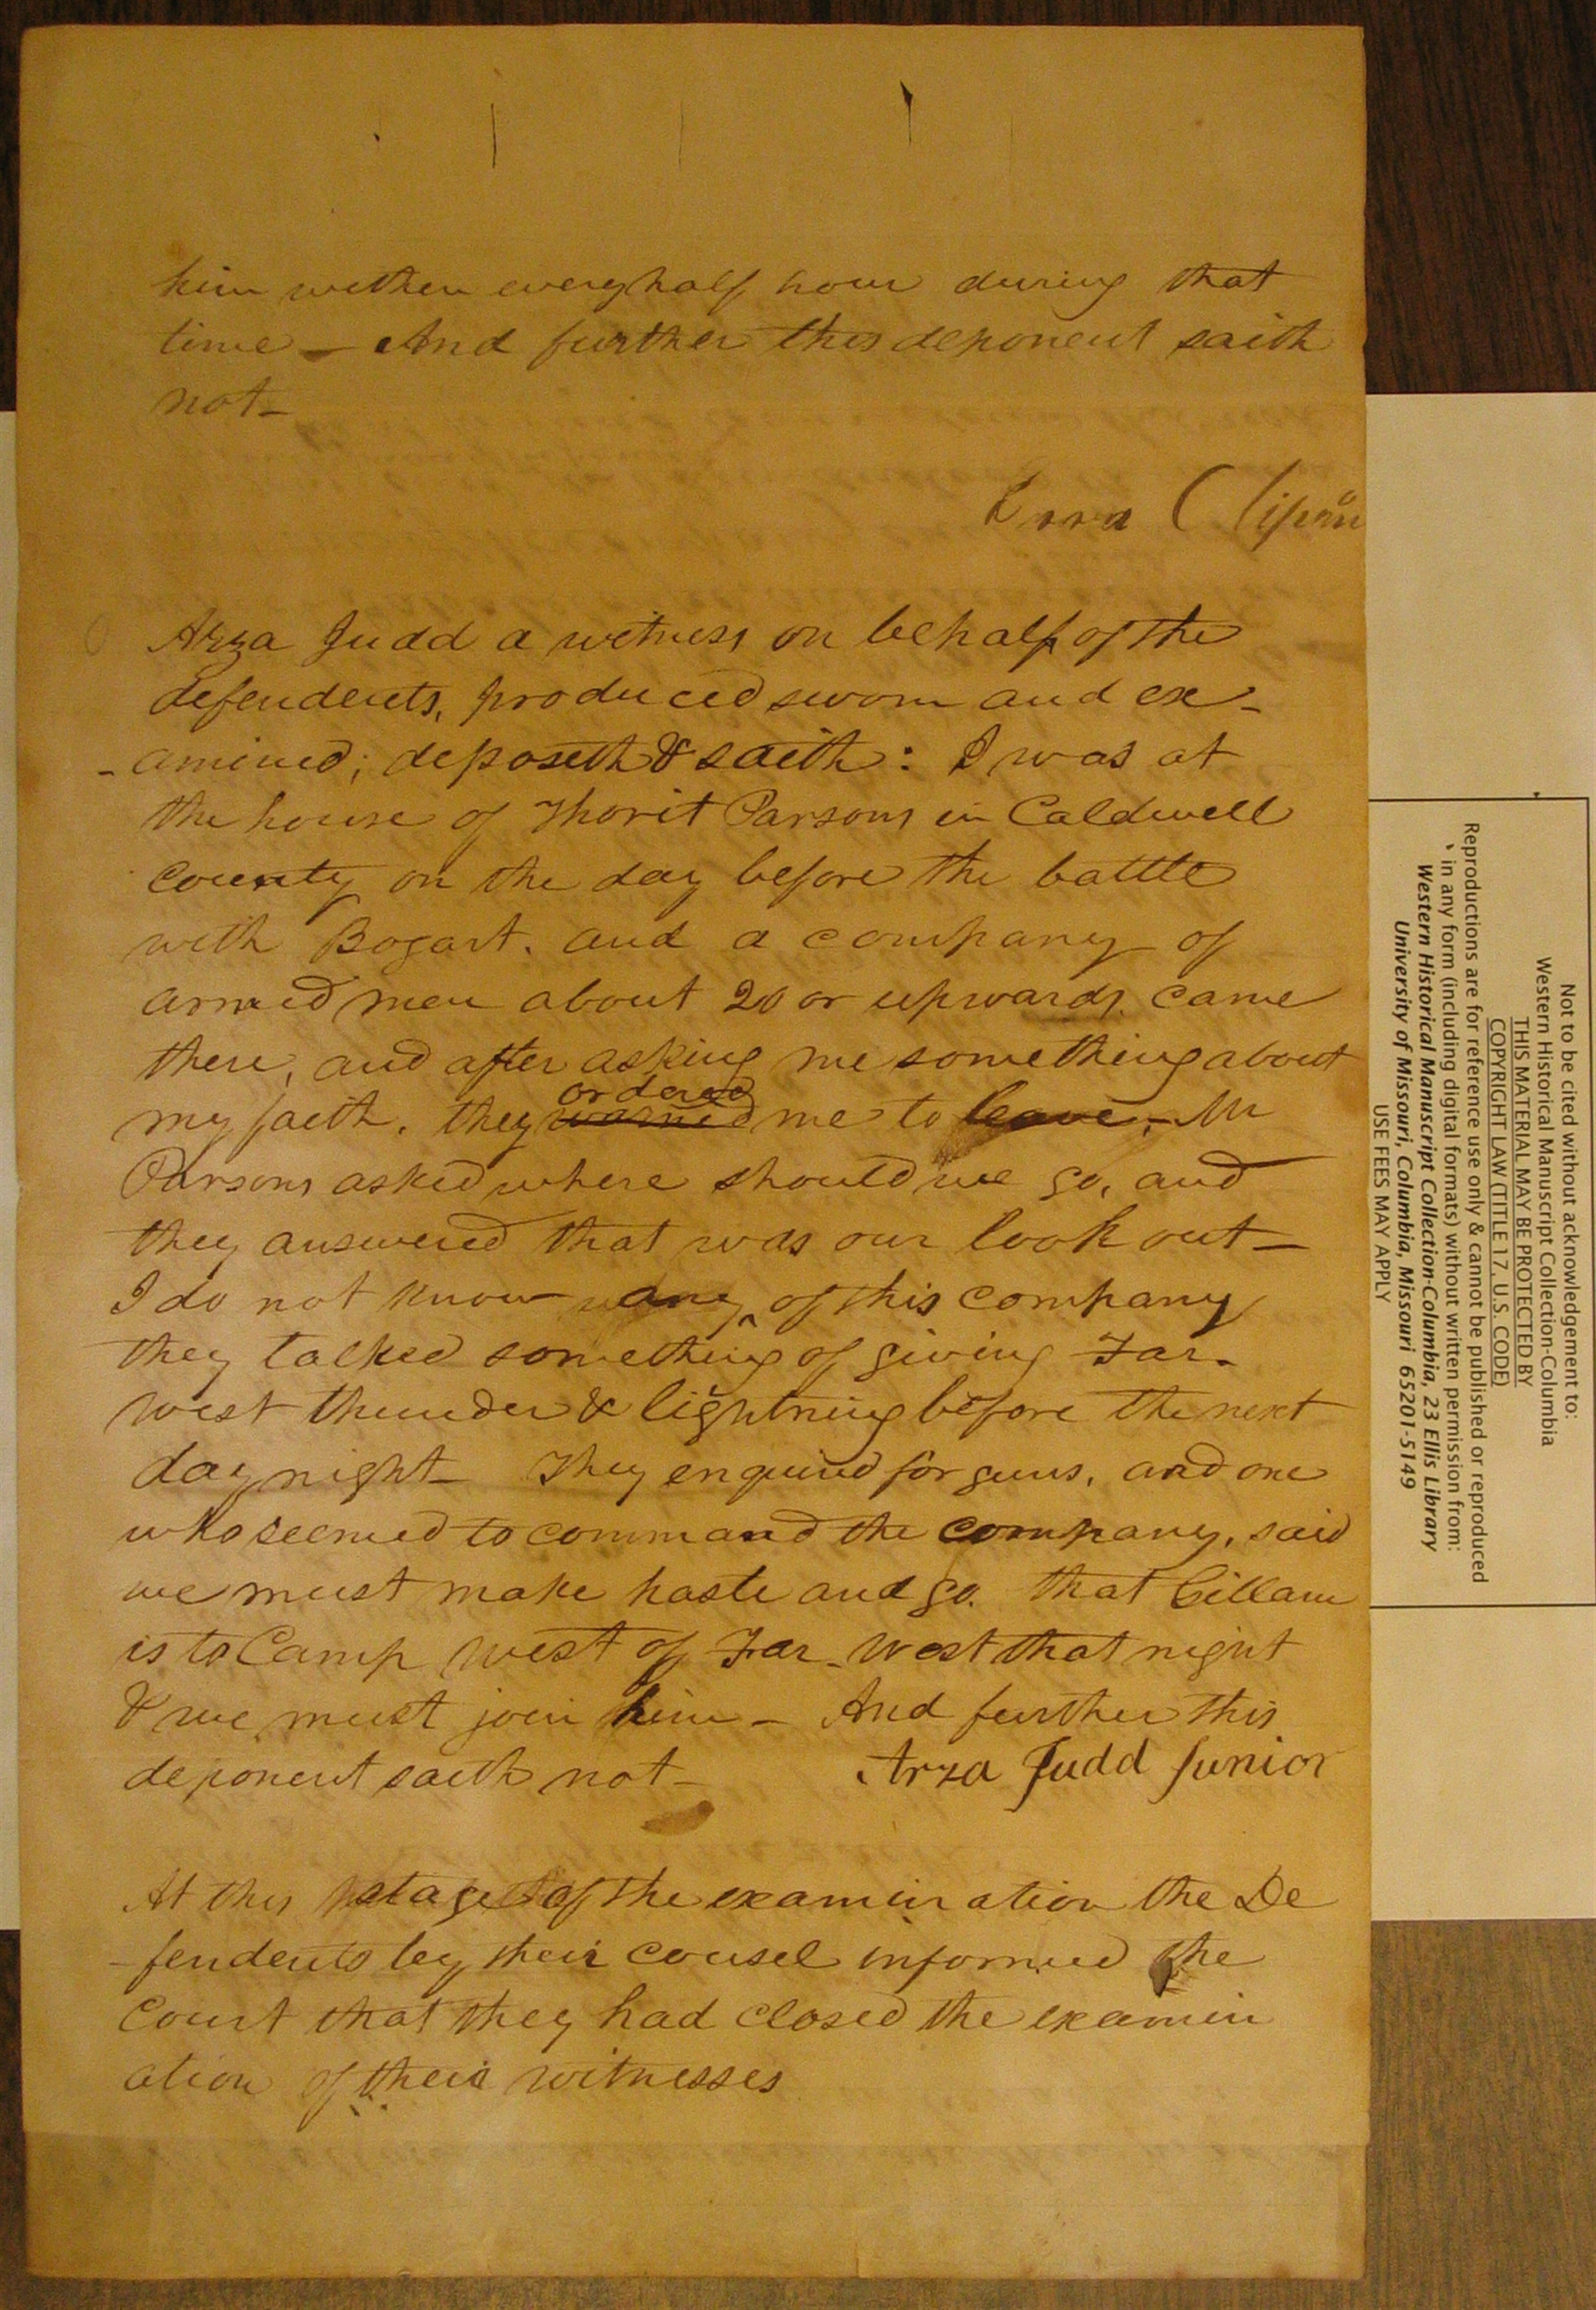 him within every half hour during that
time — And further this deponent saith
not —
Ezra Chipman
Arza Judd a witness on behalf of the
defendents, produced sworn and ex-
-amined; deposeth & saith: I was at
the house of Thorit Parsons in Caldwell
County on the day before the battle
with Bogart. and a company of
armed men about 20 or upwards. came
there, and after asking me something about
ordered
my faith. they warned me to leave. — Mr
Parsons asked where should we go, and
they answered that was our look out —
I do not know any of this company
they talked something of giving Far-
west thunder & lightning before the next
day night — They enquired for guns, and one
who seemed to command the company, said
we must make haste and go. that Gillam
is to Camp west of Far-West that night
& we must join him — And further this
deponent saith not —
Arza Judd Junior
At this stage of the examination the De
-fendents by their cousel informed the
Court that they had closed the examin
ation of their witnesses
Not to be cited without acknowledgement to:
Western Historical Manuscript Collection-Columbia
THIS MATERIAL MAY BE PROTECTED BY
COPYRIGHT LAW (TITLE 17, U.S. CODE)
Reproductions are for reference use only & cannot be published or reproduced
in any form (including digital formats) without written permission from:
Western Historical Manuscript Collection-Columbia, 23 Ellis Library
University of Missouri, Columbia, Missouri 65201-5149
USE FEES MAY APPLY